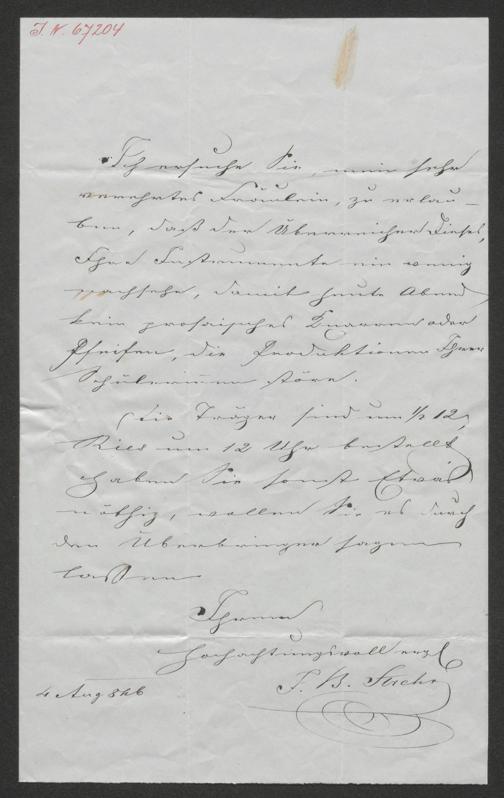 I. N. 67204
Ich ersuche Sie, mein sehr
verehrtes Fräulein, zu erlau-
ben, daß der Überreicher Dieses,
Ihre Instrumente ein wenig
nachsehe, damit heute Abend
kein prosaisches Knarren oder
Pfeifen, die Produktionen Ihrer
Schülerinnen störe.
Die Träger sind um 1/2 12,
Ries um 12 Uhr bestellt
haben Sie sonst Etwas
nöthig, wollen Sie es durch
den Überbringer sagen
lassen
Ihnen
hochachtungsvoll
4 Aug 846
J. B. Streicher